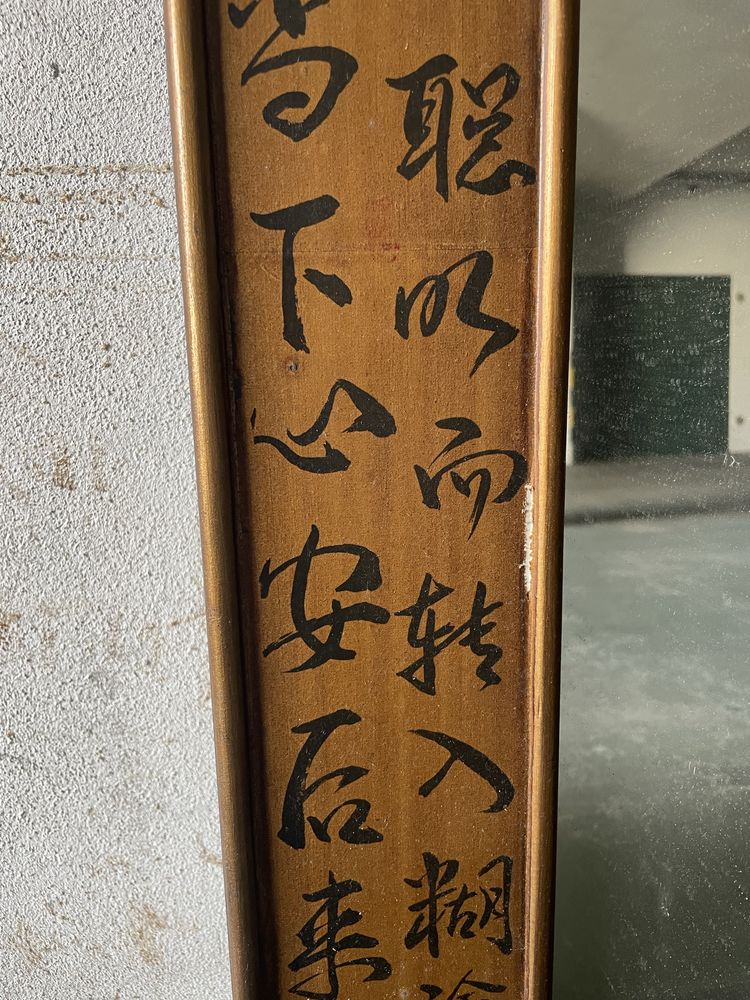 聪明而转入糊
当下心安后来